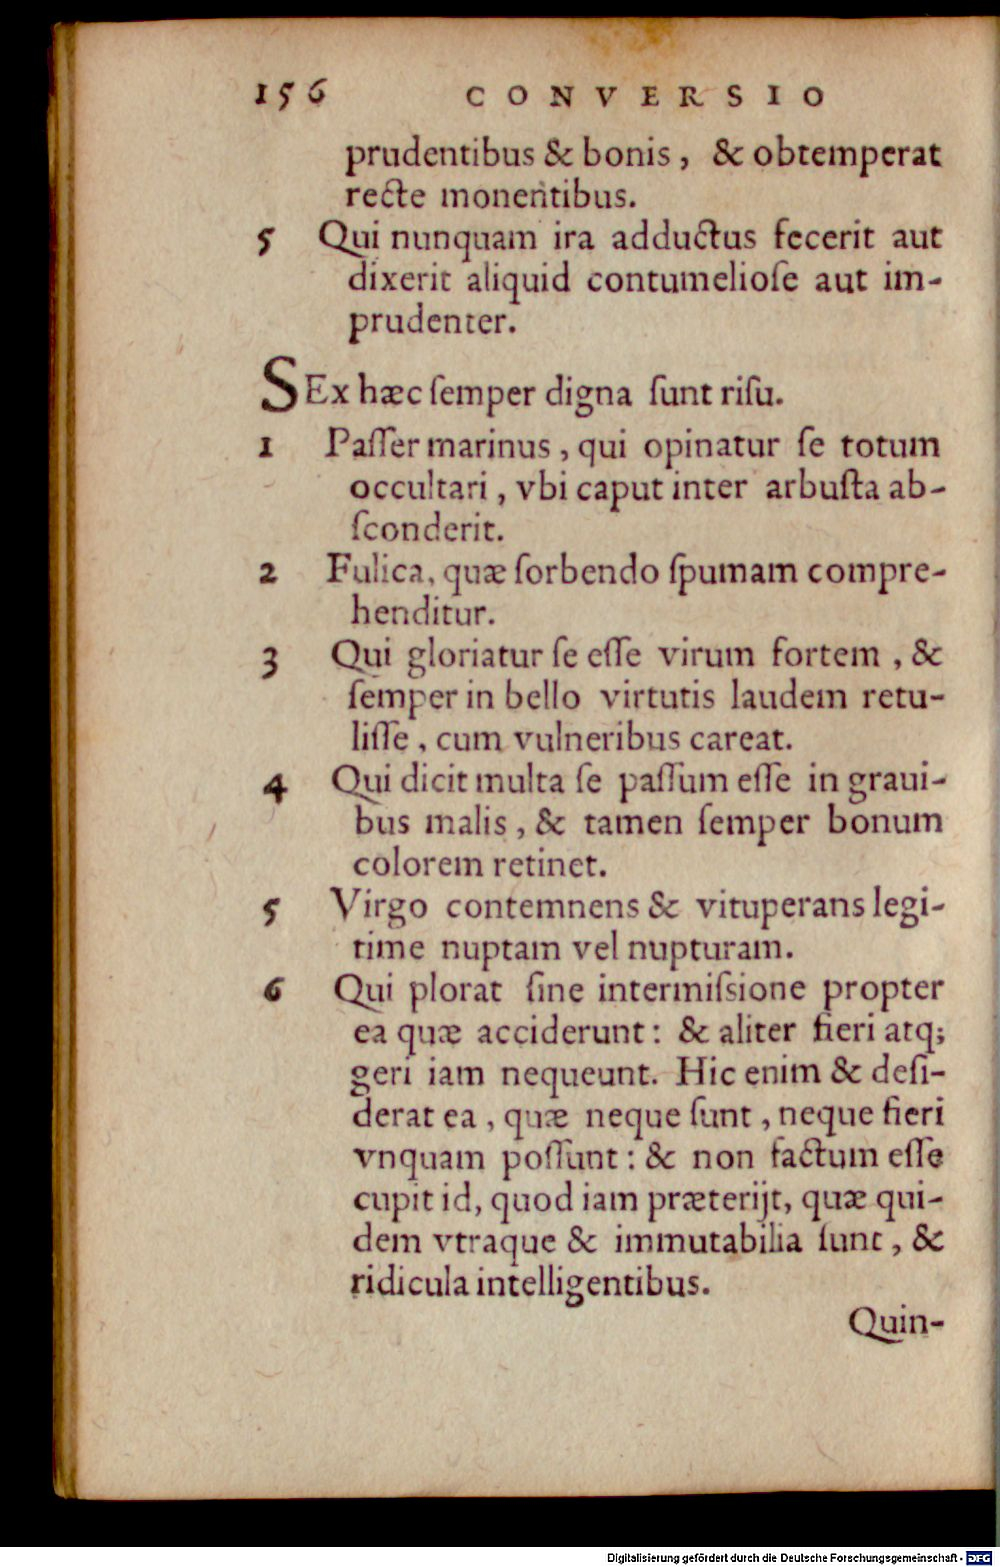 156 CONVERSIO
prudentibus & bonis, & obtemperat
recte monentibus.
5 Qui nunquam ira adductus fecerit aut
dixerit aliquid contumelioſe aut im-
prudenter.
SEx hæc ſemper digna ſunt riſu.
1 Paſſer marinus, qui opinatur ſe totum
occultari, vbi caput inter arbuſta ab-
ſconderit.
2 Fulica, quæ ſorbendo ſpumam compre-
henditur.
3 Qui gloriatur ſe eſſe virum fortem, &
ſemper in bello virtutis laudem retu-
liſſe, cum vulneribus careat.
4 Qui dicit multa ſe paſſum eſſe in graui-
bus malis, & tamen ſemper bonum
colorem retinet.
5 Virgo contemnens & vituperans legi-
time nuptam vel nupturam.
6 Qui plorat ſine intermiſsione propter
ea quæ acciderunt: & aliter fieri atq;
geri iam nequeunt. Hic enim & deſi-
derat ea, quæ neque ſunt, neque fieri
vnquam poſſunt: & non factum eſſe
cupit id, quod iam præterijt, quæ qui-
dem vtraque & immutabilia ſunt, &
ridicula intelligentibus.
Quin-
Digitalisierung gefördert durch die Deutsche Forschungsgemeinschaft - DFG